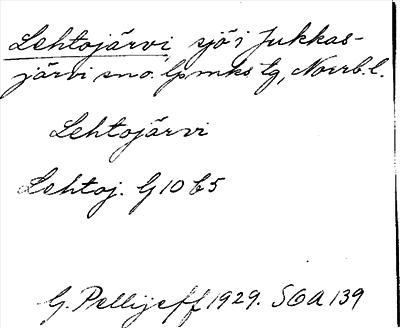 Lehtojärvi, sjö i Jukkas-
järvi sno. lpmks tg, Norrb. l.
Lehtojärvi
Lehtoj. G 10 b 5
G. Pellijeff 1929. SOA 139